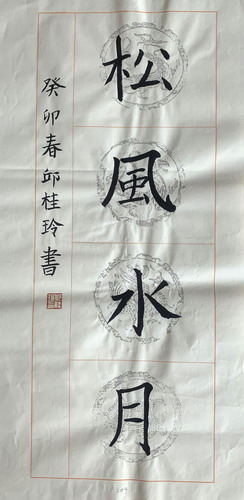 松風水月
癸卯春邱桂玲書